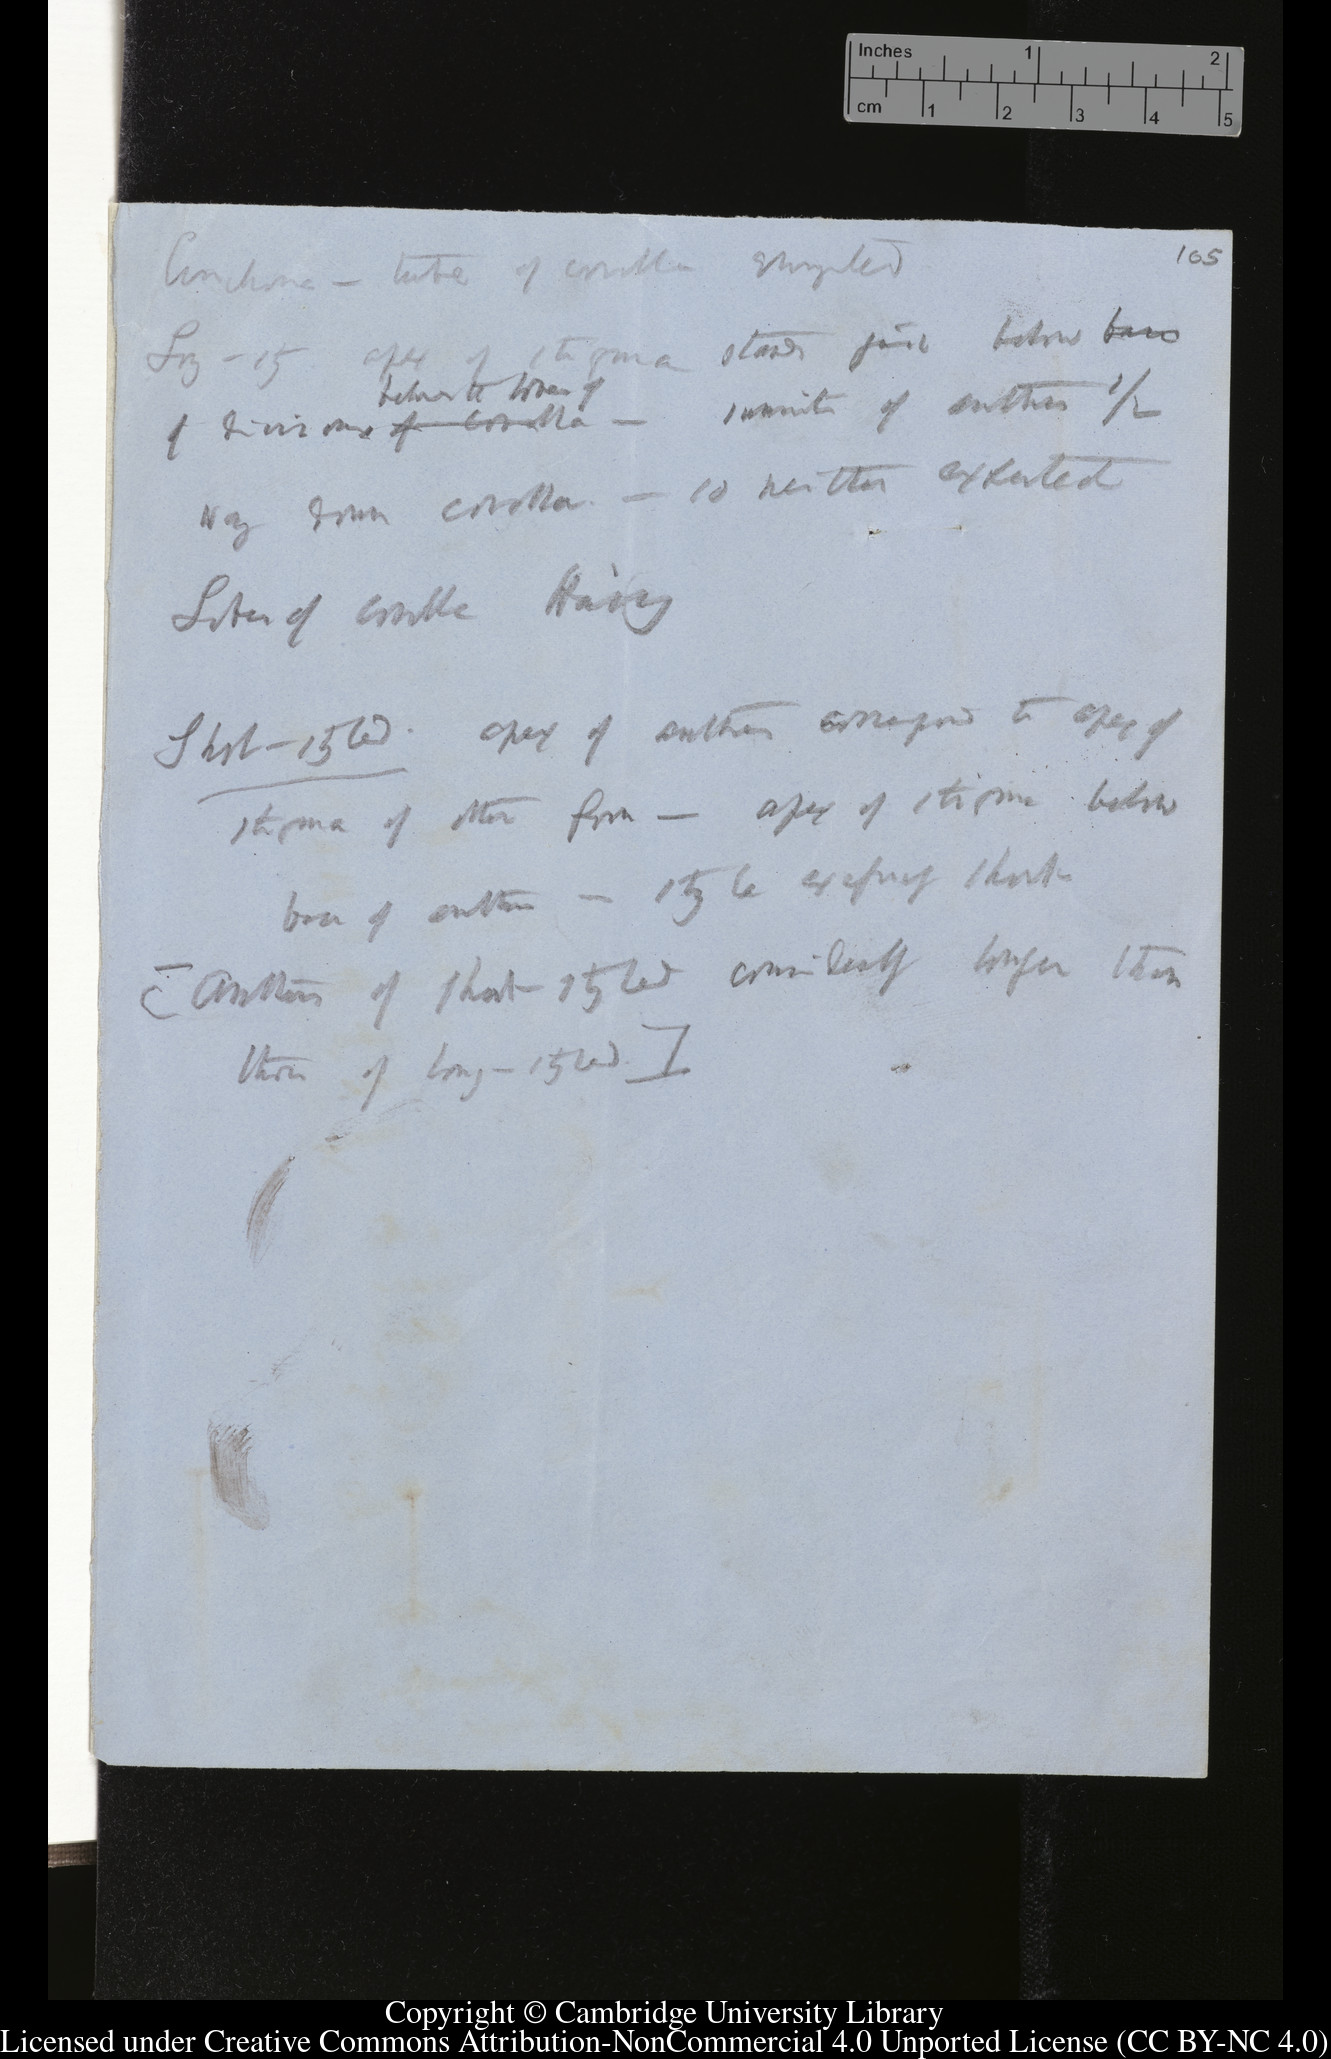 Inches 1 2
cm 1 2 3 4 5
165
Cinchona — tube of corolla elongated
Long-sty apex of stigma stands just below base
between the lobes of
of divisions of corolla — summits of anthers 1/2
way down corolla. — so neither exserted
Lobes of corolla Hairy
Short-styled. apex of anthers correspond to apex of
stigma of other form — apex of stigma below
base of anthers — style short
[Anthers of short-styled considerably longer than
those of long-styled.]
Copyright © Cambridge University Library
Licensed under Creative Commons Attribution-NonCommercial 4.0 Unported License (CC BY-NC 4.0)